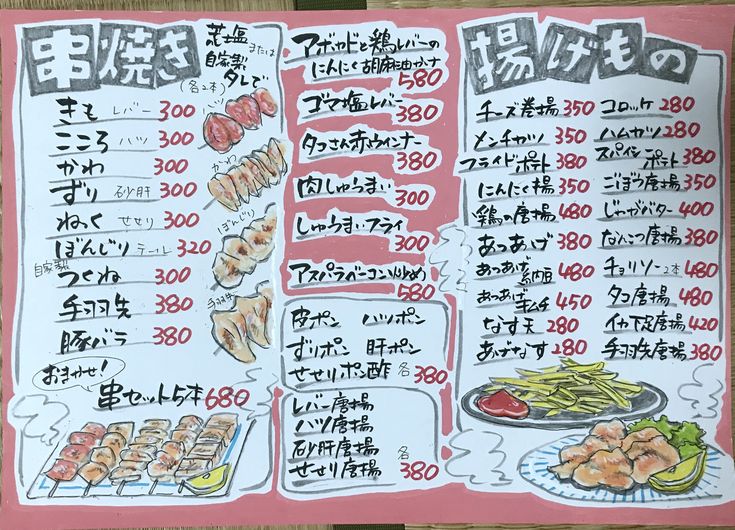 串焼き
荒塩または
自家製タレで
(各2本)
きも レバー 300
こころ ハツ 300
かわ 300
ずり 砂肝 300
ねっく せせり 300
ぼんじり テール 320
自家製つくね 300
手羽先 380
豚バラ 380
おまかせ!
串セット5本 680
ハツ
かわ
ぼんじり
手羽先
アボカドと鶏レバーの
にんにく胡麻油かけ
580
ゴマ塩レバー
380
タコさん赤ウィンナー
380
肉しゅうまい
300
しゅうまいフライ
300
アスパラベーコン炒め
580
皮ポン ハツポン
ずりポン 肝ポン
せせりポン酢 各380
レバー唐揚
ハツ唐揚
砂肝唐揚
せせり唐揚 各380
揚げもの
チーズ巻揚 350
メンチカツ 350
フライドポテト 380
にんにく揚 350
鶏の唐揚 480
あつあげ 380
あつあげ納豆 480
あつあげキムチ 450
なす天 280
あげなす 280
コロッケ 280
ハムカツ 280
スパイシーポテト 380
ごぼう唐揚 350
じゃがバター 400
なんこつ唐揚 380
チョリソー2本 480
タコ唐揚 480
イカ下足唐揚 420
手羽先唐揚 380